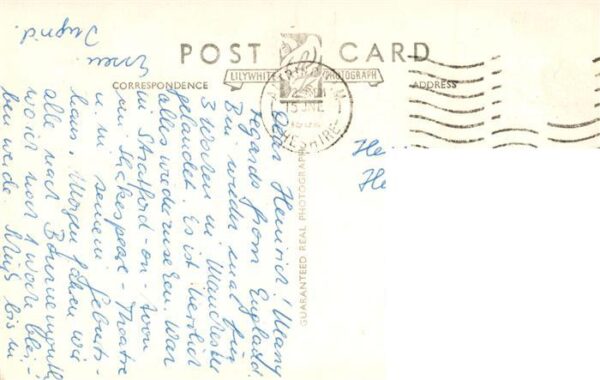 POST CARD
LILYWHITE PHOTOGRAPH
CORRESPONDENCE
ADDRESS
GUARANTEED REAL PHOTOGRAPH
15 JNE
CHESHIRE
Dear Heinrich! Many
regards from England.
Bin wieder mal für
3 Wochen in Manchester
gelandet. Es ist herrlich
alles wiederzusehen. War
in Stratford-on-Avon
im Shakespeare-Theatre
u. in seinem Geburts-
haus. Morgen fahren wir
alle nach Bournemouth
wo ich noch 1 Woche blei-
ben werde.
bis
Ingrid.
He
He